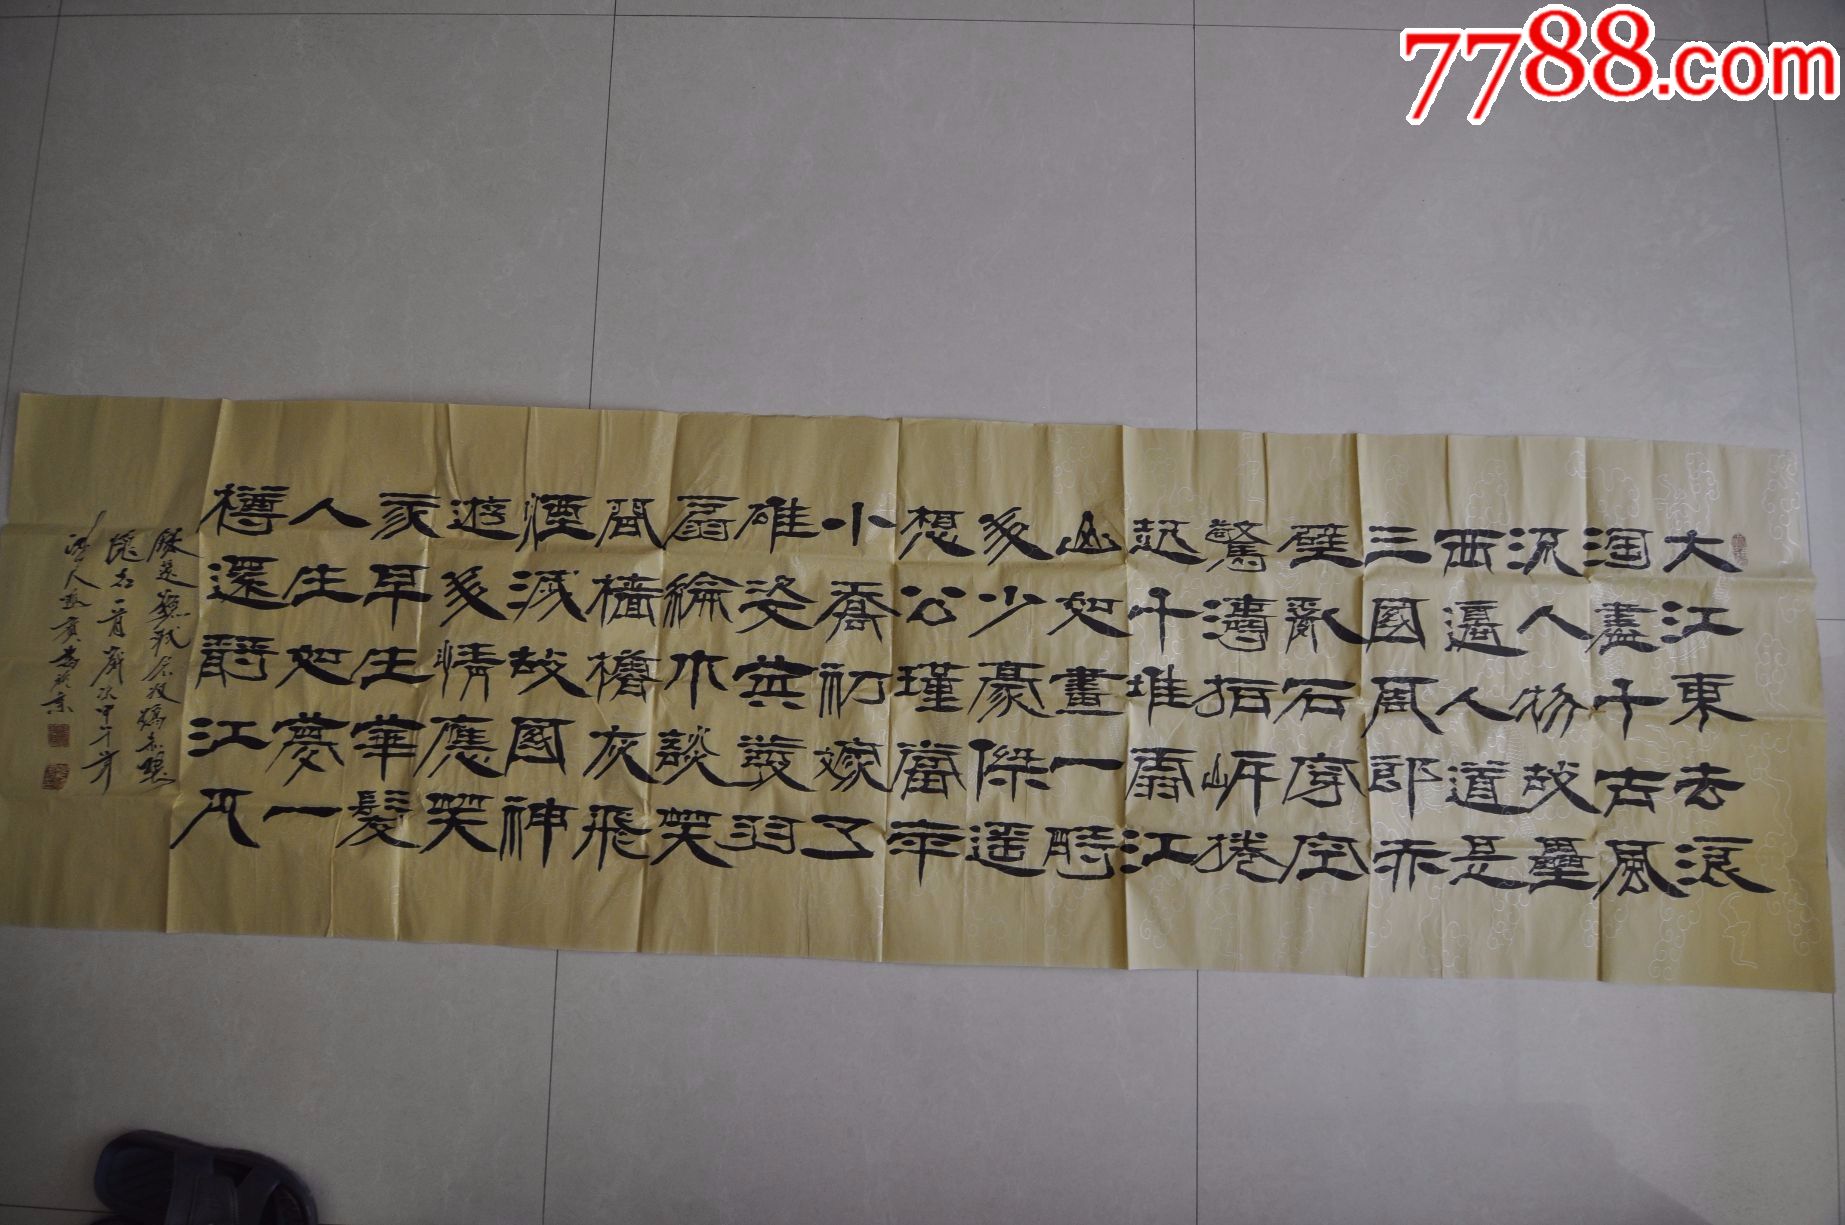 7788.com
大江東去浪
淘盡千古風
流人物故壘
西邊人道是
三國周郎赤
壁亂石穿空
驚濤拍岸捲
起千堆雪江
山如畫一時
多少豪傑遙
想公瑾當年
小喬初嫁了
雄姿英發羽
扇綸巾談笑
間檣櫓灰飛
煙滅故國神
遊多情應笑
我早生華髮
人生如夢一
樽還酹江月
念奴嬌赤壁
懷古一首歲次甲午年